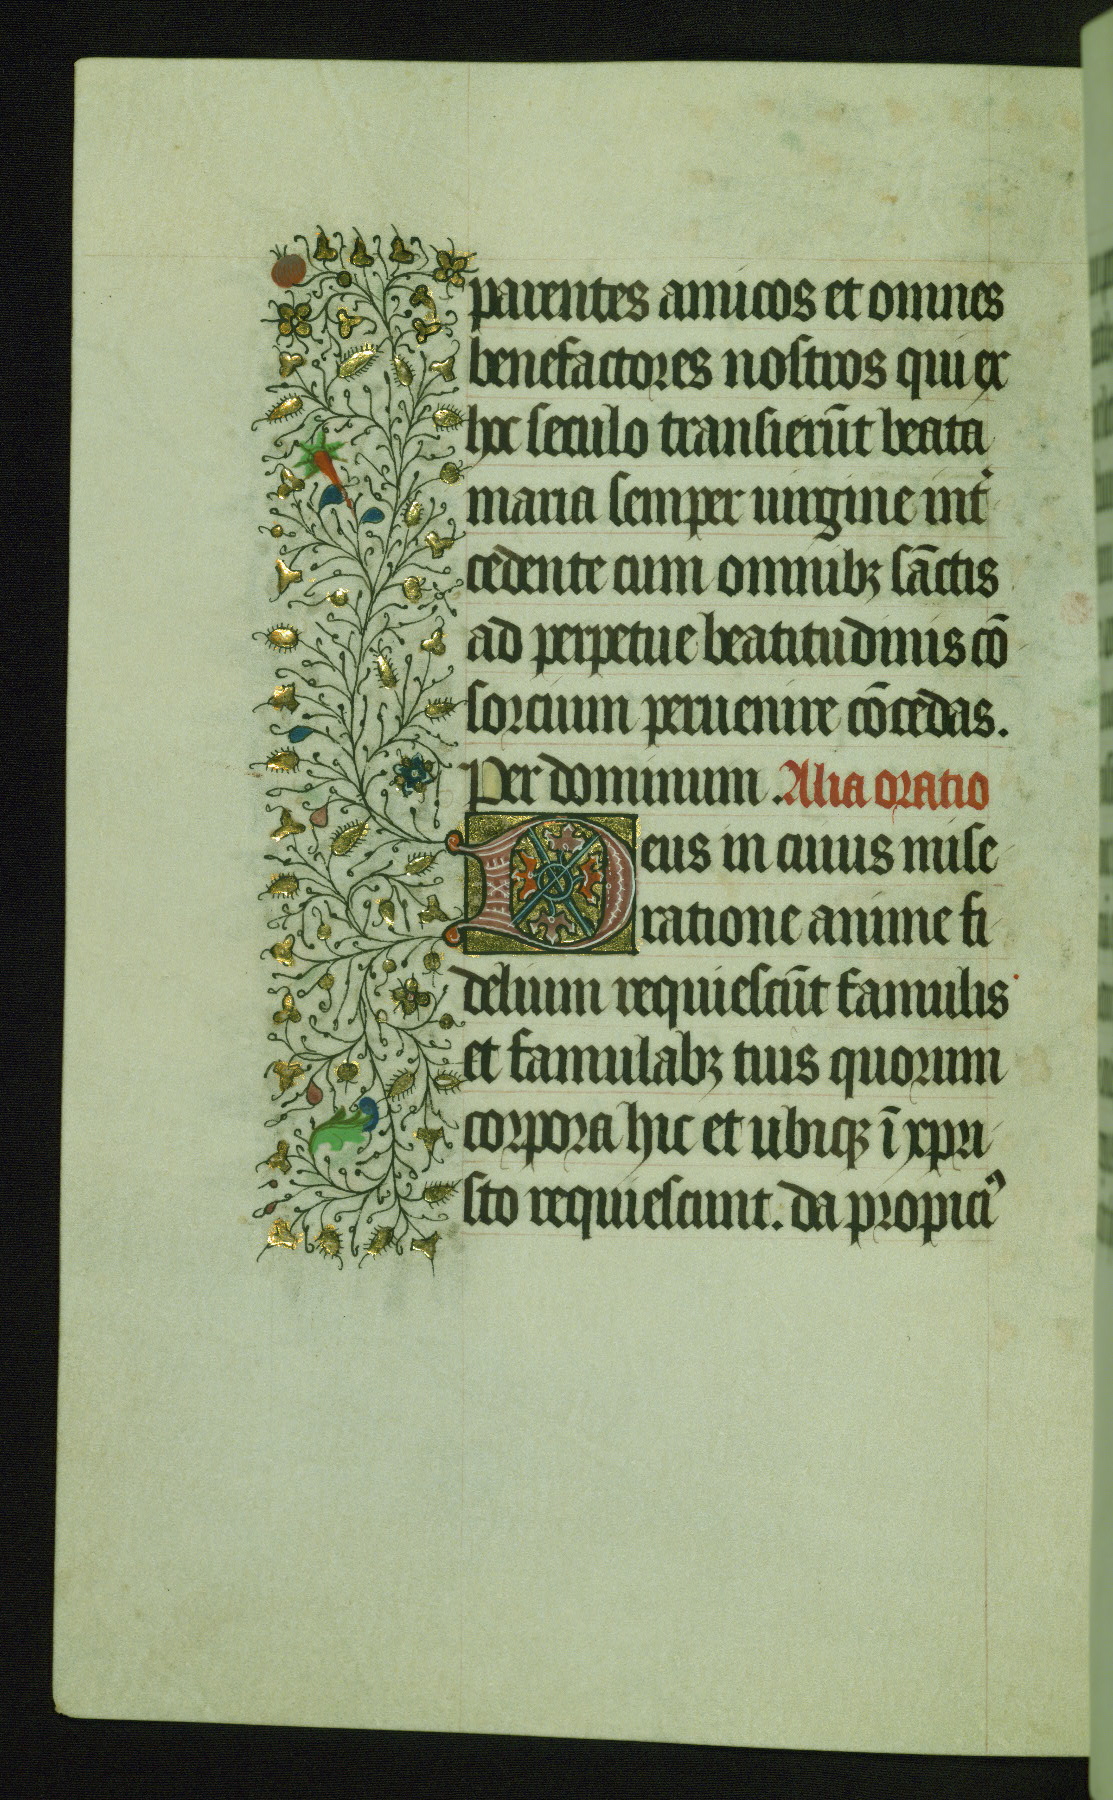 parentes amicos et omnes
benefactores nostros qui ex
hoc seculo transierūt beata
maria semper uirgine int᷑
cedente cum omnibꝫ sāctis
ad perpetue beatitudinis cō
sorcium peruenire cōcedas.
Per dominum. Alia oratio
Deus in cuius mise
ratione anime fi
delium requiescūt famulis
et famulabꝫ tuis quorum
corpora hic et ubiqꝫ ī xpri
sto requiescunt. da propiciꝰ